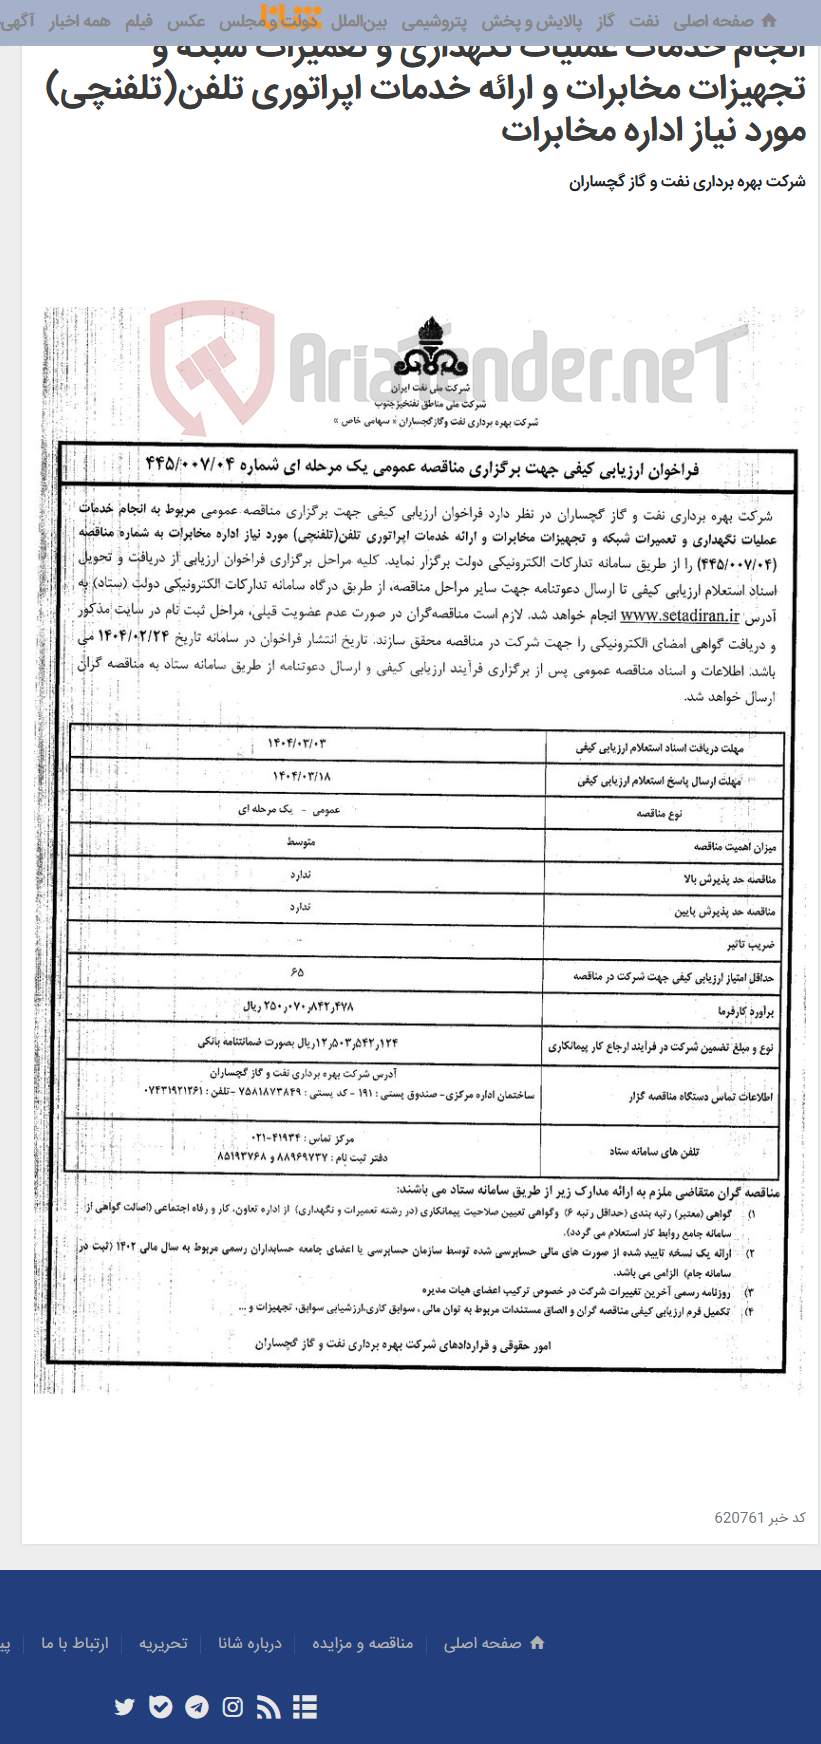 صفحه اصلی نفت گاز پالایش و پخش پتروشیمی بین‌الملل دولت و مجلس عکس فیلم همه اخبار آگهی
شانا
انجام خدمات عملیات نگهداری و تعمیرات شبکه و
تجهیزات مخابرات و ارائه خدمات اپراتوری تلفن(تلفنچی)
مورد نیاز اداره مخابرات
شرکت بهره برداری نفت و گاز گچساران
AriaTender.neT
شرکت ملی نفت ایران
شرکت ملی مناطق نفتخیز جنوب
شرکت بهره برداری نفت و گاز گچساران « سهامی خاص »
فراخوان ارزیابی کیفی جهت برگزاری مناقصه عمومی یک مرحله ای شماره ۴۴۵/۰۰۷/۰۴
شرکت بهره برداری نفت و گاز گچساران در نظر دارد فراخوان ارزیابی کیفی جهت برگزاری مناقصه عمومی مربوط به انجام خدمات
عملیات نگهداری و تعمیرات شبکه و تجهیزات مخابرات و ارائه خدمات اپراتوری تلفن(تلفنچی) مورد نیاز اداره مخابرات به شماره مناقصه
(۴۴۵/۰۰۷/۰۴) را از طریق سامانه تدارکات الکترونیکی دولت برگزار نماید. کلیه مراحل برگزاری فراخوان ارزیابی از دریافت و تحویل
اسناد استعلام ارزیابی کیفی تا ارسال دعوتنامه جهت سایر مراحل مناقصه، از طریق درگاه سامانه تدارکات الکترونیکی دولت (ستاد) به
آدرس www.setadiran.ir انجام خواهد شد. لازم است مناقصه‌گران در صورت عدم عضویت قبلی، مراحل ثبت نام در سایت مذکور
و دریافت گواهی امضای الکترونیکی را جهت شرکت در مناقصه محقق سازند. تاریخ انتشار فراخوان در سامانه تاریخ ۱۴۰۴/۰۲/۲۴ می
باشد. اطلاعات و اسناد مناقصه عمومی پس از برگزاری فرآیند ارزیابی کیفی و ارسال دعوتنامه از طریق سامانه ستاد به مناقصه گران
ارسال خواهد شد.
مهلت دریافت اسناد استعلام ارزیابی کیفی ۱۴۰۴/۰۳/۰۳
مهلت ارسال پاسخ استعلام ارزیابی کیفی ۱۴۰۴/۰۳/۱۸
نوع مناقصه عمومی - یک مرحله ای
میزان اهمیت مناقصه متوسط
مناقصه حد پذیرش بالا ندارد
مناقصه حد پذیرش پایین ندارد
ضریب تاثیر -
حداقل امتیاز ارزیابی کیفی جهت شرکت در مناقصه ۶۵
برآورد کارفرما ۲۵۰٫۰۷۰٫۸۴۲٫۴۷۸ ریال
نوع و مبلغ تضمین شرکت در فرآیند ارجاع کار پیمانکاری ۱۲٫۵۰۳٫۵۴۲٫۱۲۴ ریال بصورت ضمانتنامه بانکی
آدرس شرکت بهره برداری نفت و گاز گچساران
اطلاعات تماس دستگاه مناقصه گزار ساختمان اداره مرکزی- صندوق پستی : ۱۹۱ - کد پستی : ۷۵۸۱۸۷۳۸۴۹ -تلفن : ۰۷۴۳۱۹۲۱۲۶۱
تلفن های سامانه ستاد مرکز تماس : ۴۱۹۳۴-۰۲۱
دفتر ثبت نام : ۸۸۹۶۹۷۳۷ و ۸۵۱۹۳۷۶۸
مناقصه گران متقاضی ملزم به ارائه مدارک زیر از طریق سامانه ستاد می باشند:
۱) گواهی (معتبر) رتبه بندی (حداقل رتبه ۶) وگواهی تعیین صلاحیت پیمانکاری (در رشته تعمیرات و نگهداری) از اداره تعاون، کار و رفاه اجتماعی (اصالت گواهی از
سامانه جامع روابط کار استعلام می گردد).
۲) ارائه یک نسخه تایید شده از صورت های مالی حسابرسی شده توسط سازمان حسابرسی یا اعضای جامعه حسابداران رسمی مربوط به سال مالی ۱۴۰۲ (ثبت در
سامانه جام) الزامی می باشد.
۳) روزنامه رسمی آخرین تغییرات شرکت در خصوص ترکیب اعضای هیات مدیره
۴) تکمیل فرم ارزیابی کیفی مناقصه گران و الصاق مستندات مربوط به توان مالی ، سوابق کاری،ارزشیابی سوابق، تجهیزات و ...
امور حقوقی و قراردادهای شرکت بهره برداری نفت و گاز گچساران
کد خبر 620761
صفحه اصلی مناقصه و مزایده درباره شانا تحریریه ارتباط با ما